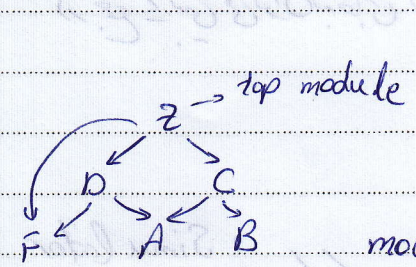 Z → top module
D C
F A B mod